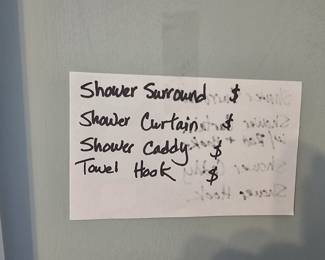 Shower Surround $
Shower Curtain $
Shower Caddy $
Towel Hook $